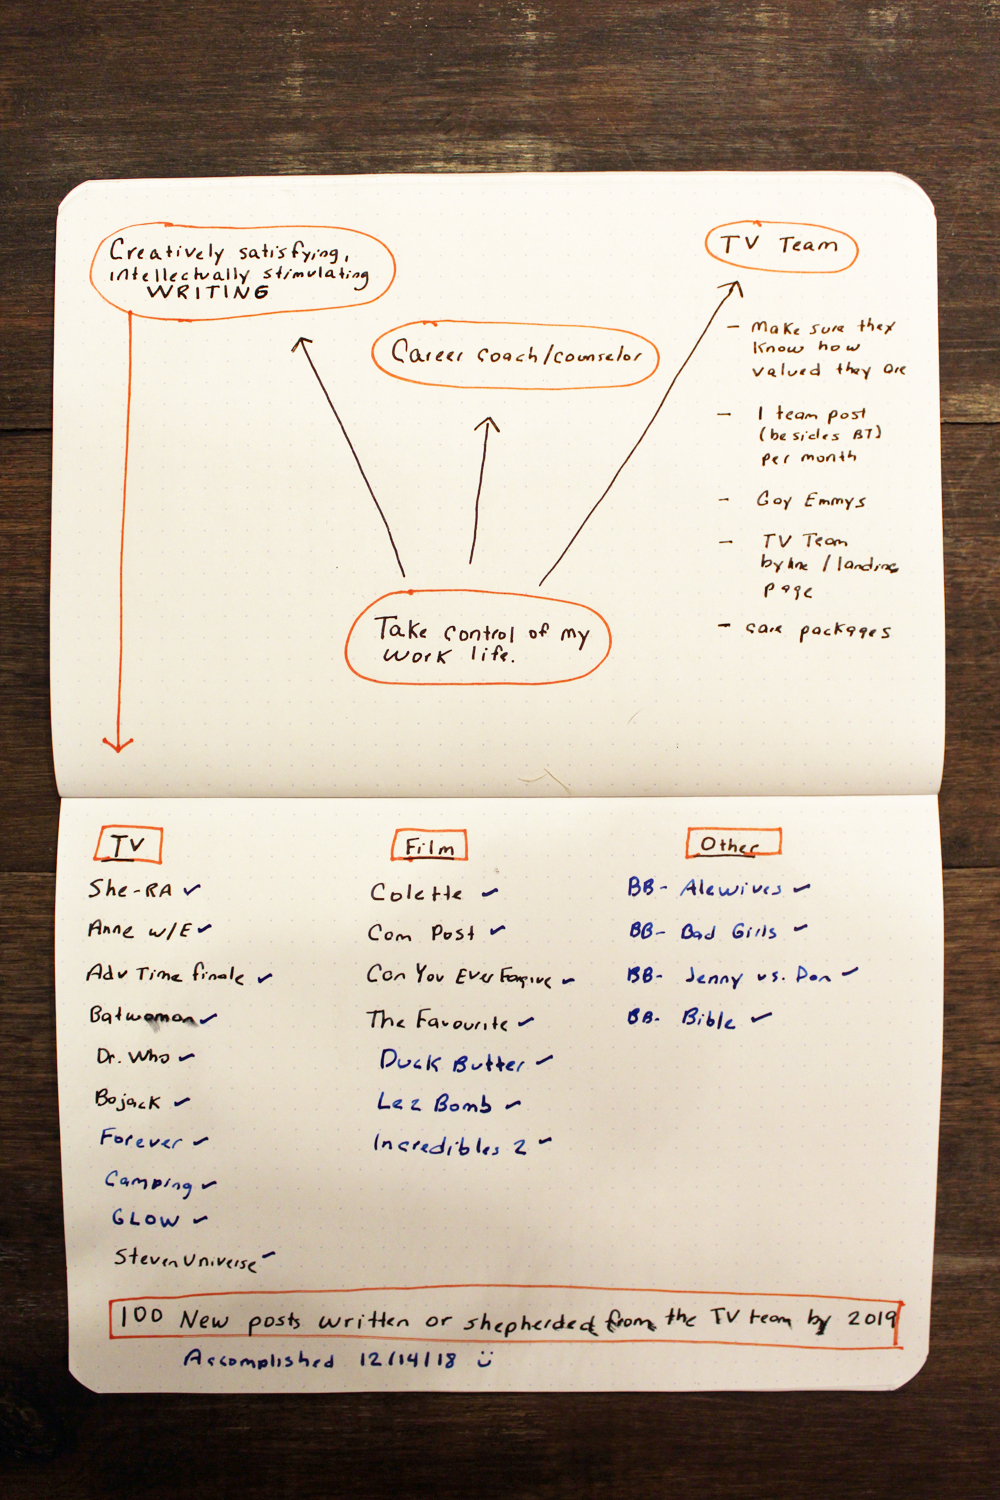 Creatively satisfying,
intellectually stimulating
WRITING
Career coach/counselor
TV Team
- Make sure they
know how
valued they are
- 1 team post
(besides BT)
per month
- Gay Emmys
- TV Team
byline / landing
page
- care packages
Take control of my
work life.
TV
She-RA ✓
Anne w/E ✓
Adv Time finale ✓
Batwoman ✓
Dr. Who ✓
Bojack ✓
Forever ✓
Camping ✓
GLOW ✓
Steven Universe ✓
Film
Colette ✓
Com Post ✓
Can You Ever Forgive ✓
The Favourite ✓
Duck Butter ✓
Lez Bomb ✓
Incredibles 2 ✓
Other
BB- Alewives ✓
BB- Bad Girls ✓
BB- Jenny vs. Dan ✓
BB- Bible ✓
100 New posts written or shepherded from the TV team by 2019
Accomplished 12/14/18 Ü